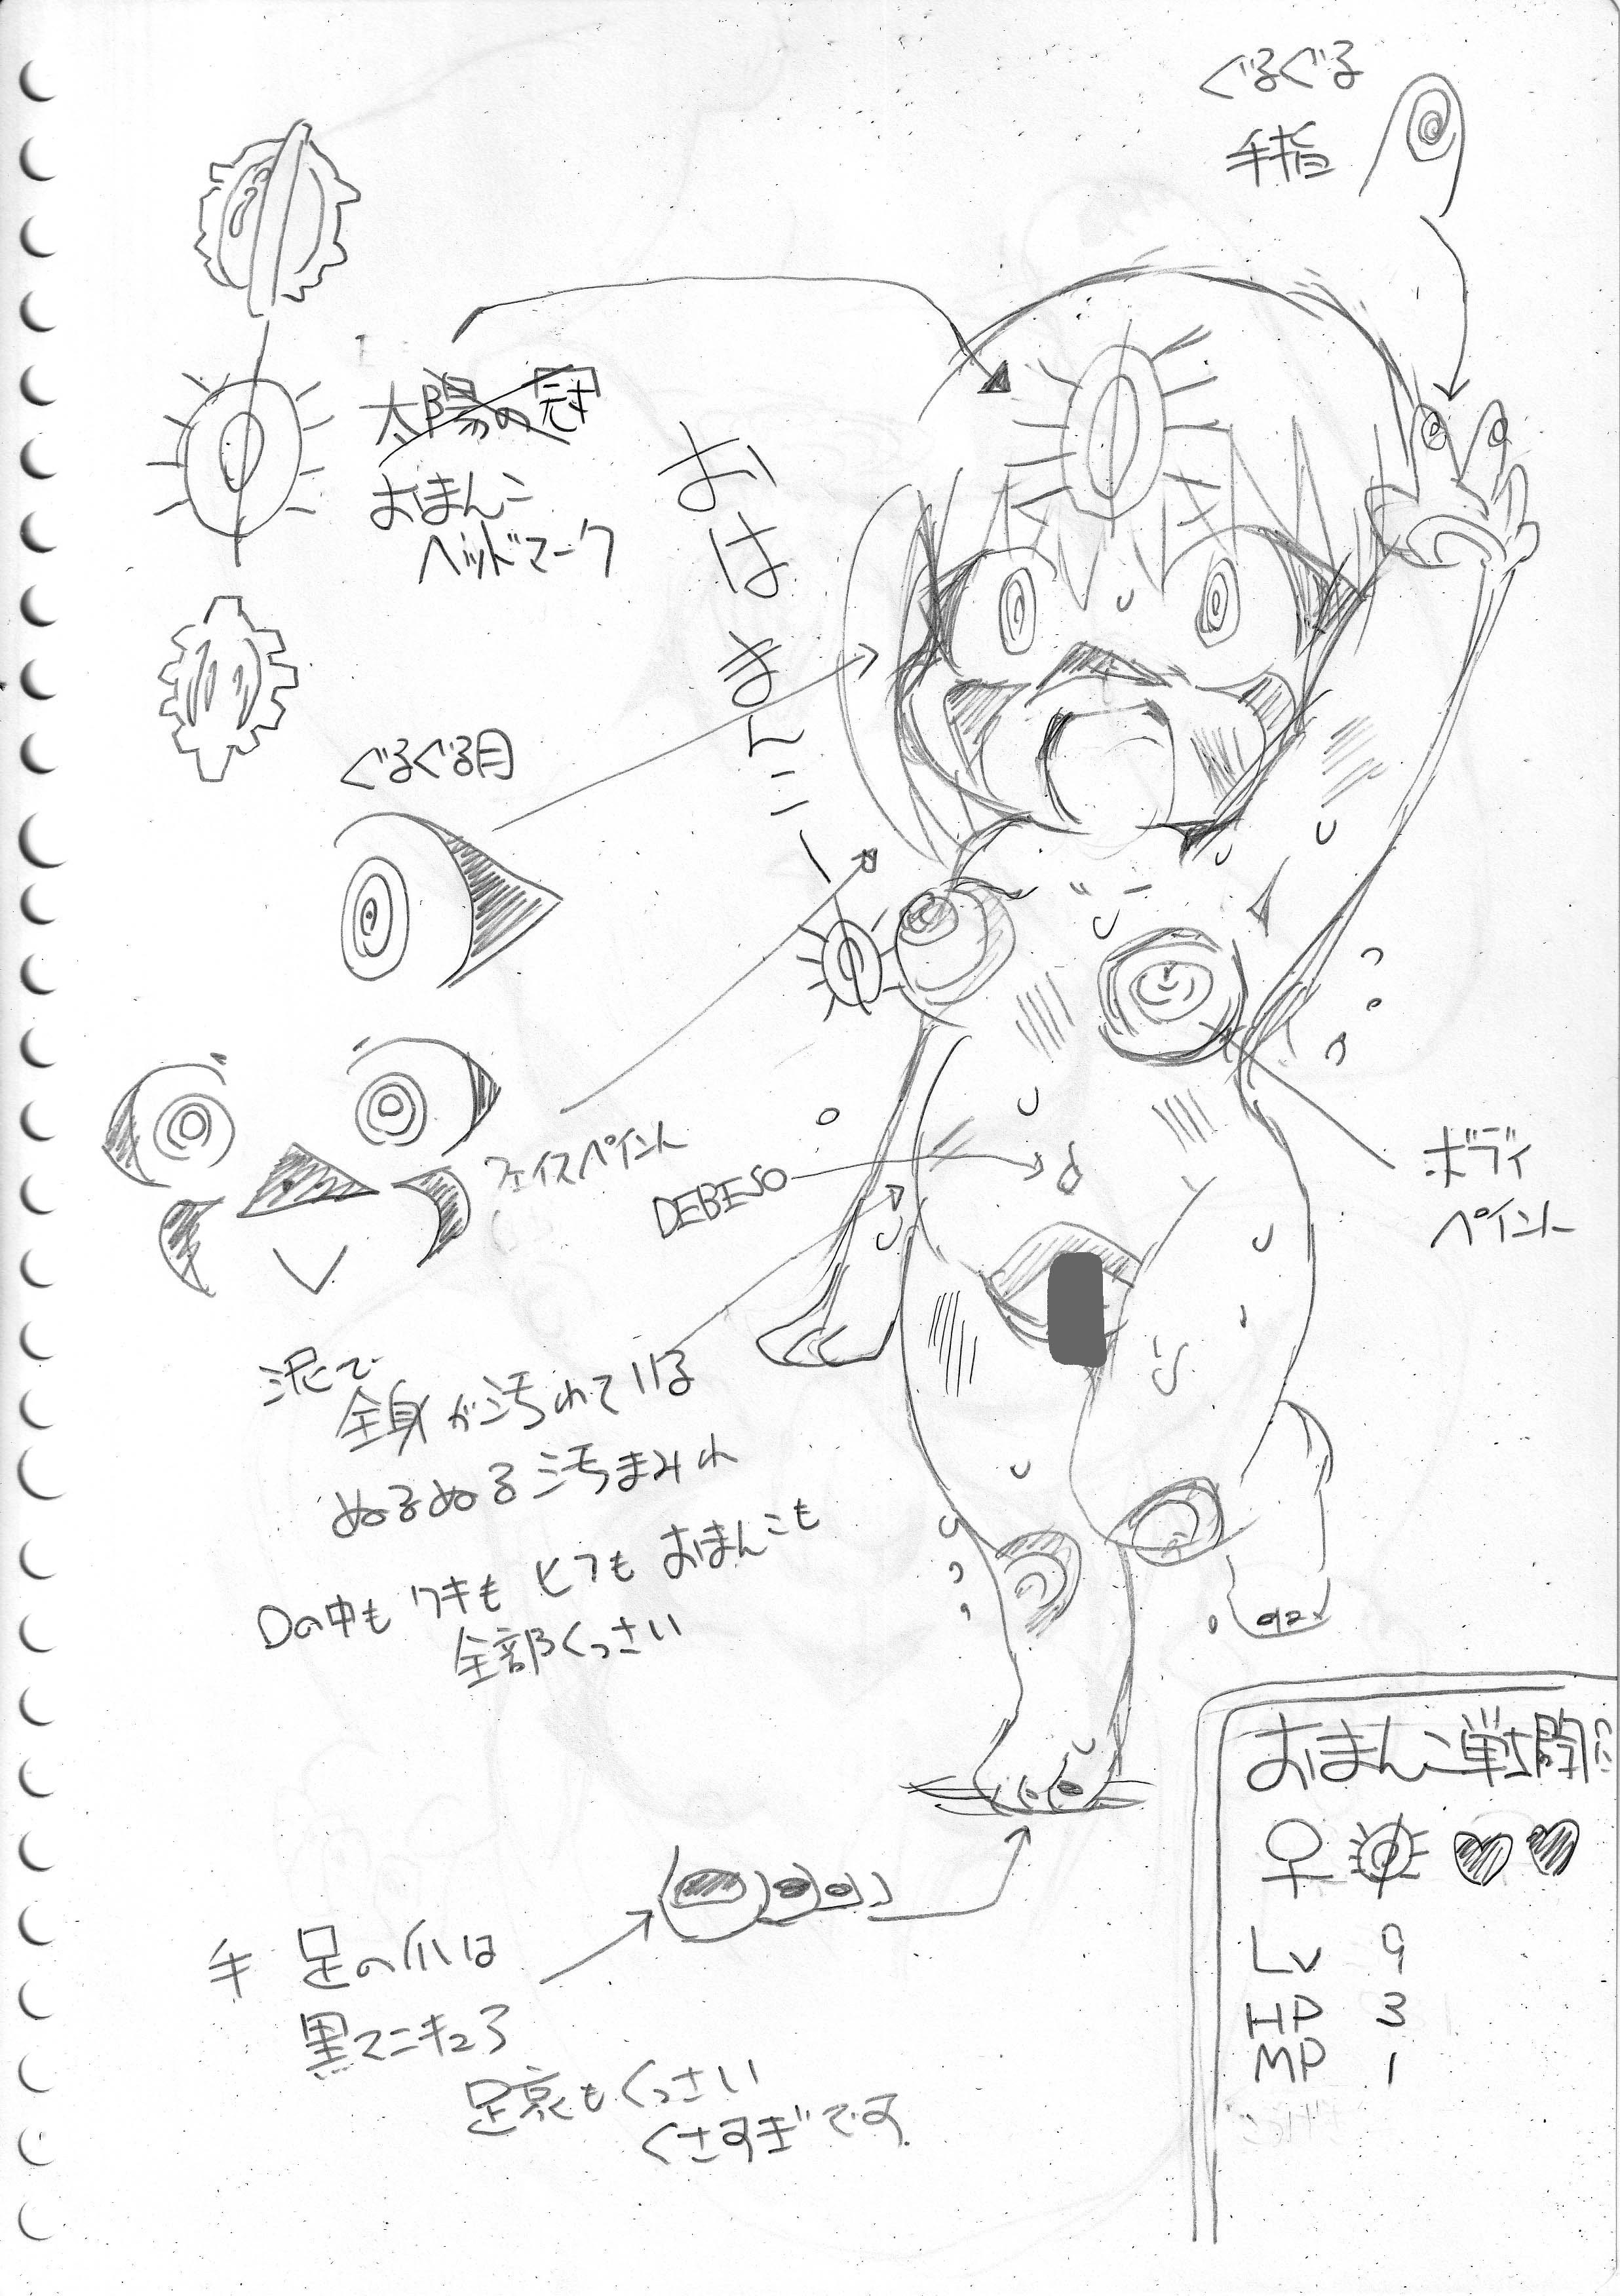 ぐるぐる
手指
太陽の冠
おまんこ
ヘッドマーク
おはまんこー
ぐるぐる目
フェイスペイント
DEBESO
ボディ
ペイント
泥で
全身が汚れている
ぬるぬる汚まみれ
口の中も ワキも ヒフも おまんこも
全部くっさい
おまんこ戦闘
♀
Lv 9
HP 3
MP 1
手 足の爪は
黒マニキュア
足裏もくっさい
くさすぎです